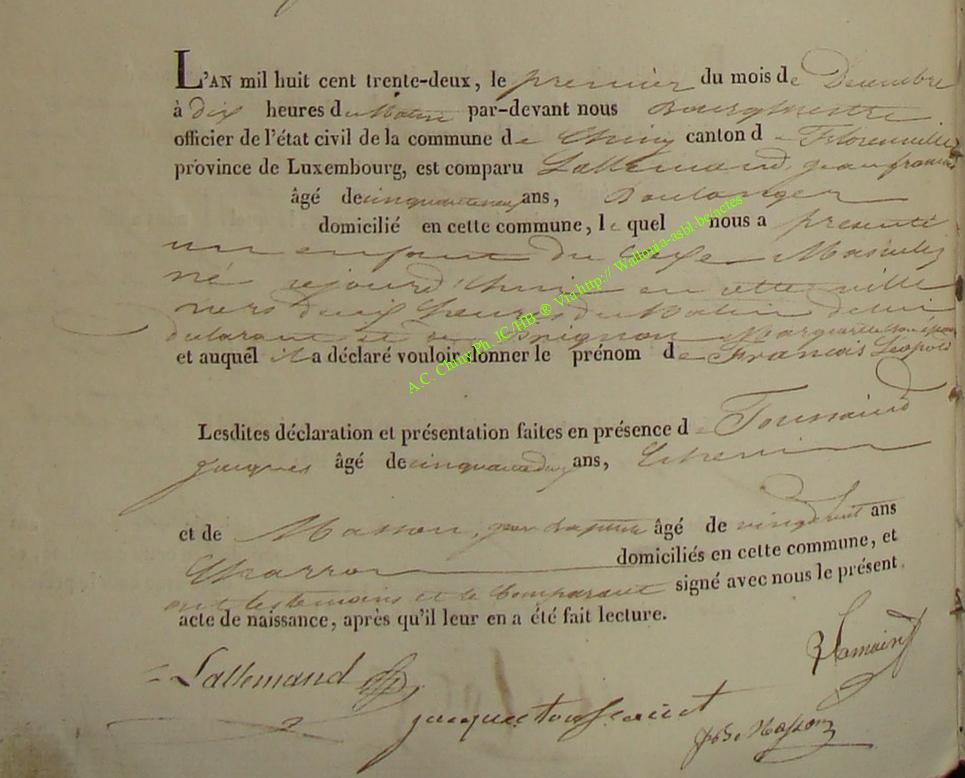 L'AN mil huit cent trente-deux, le premier du mois de Decembre
à dix heures du Matin par-devant nous Bourgmestre
officier de l'état civil de la commune de Chiny canton de Florenville
province de Luxembourg, est comparu Lallemand, jean françois
âgé de ans, Boulanger
domicilié en cette commune, le quel nous a presenté
un enfant du Sexe Masculin
né cejourd'hui en cette ville
vers dix heures du Matin de lui
declarant et de Pignon Marguerite son épouse
et auquel il a déclaré vouloir donner le prénom de Francois Leopold
Lesdites déclaration et présentation faites en présence de Toussaint
jacques âgé de ans,
et de Masson, jean baptiste âgé de vingt huit ans
Charron domiciliés en cette commune, et
ont les temoins et le Comparant signé avec nous le présent
acte de naissance, après qu'il leur en a été fait lecture.
Lallemand
jacque toussaint
Masson
A.C. Chiny Ph. IC/HB ® Via http:// Wallonia-asbl.be/actes